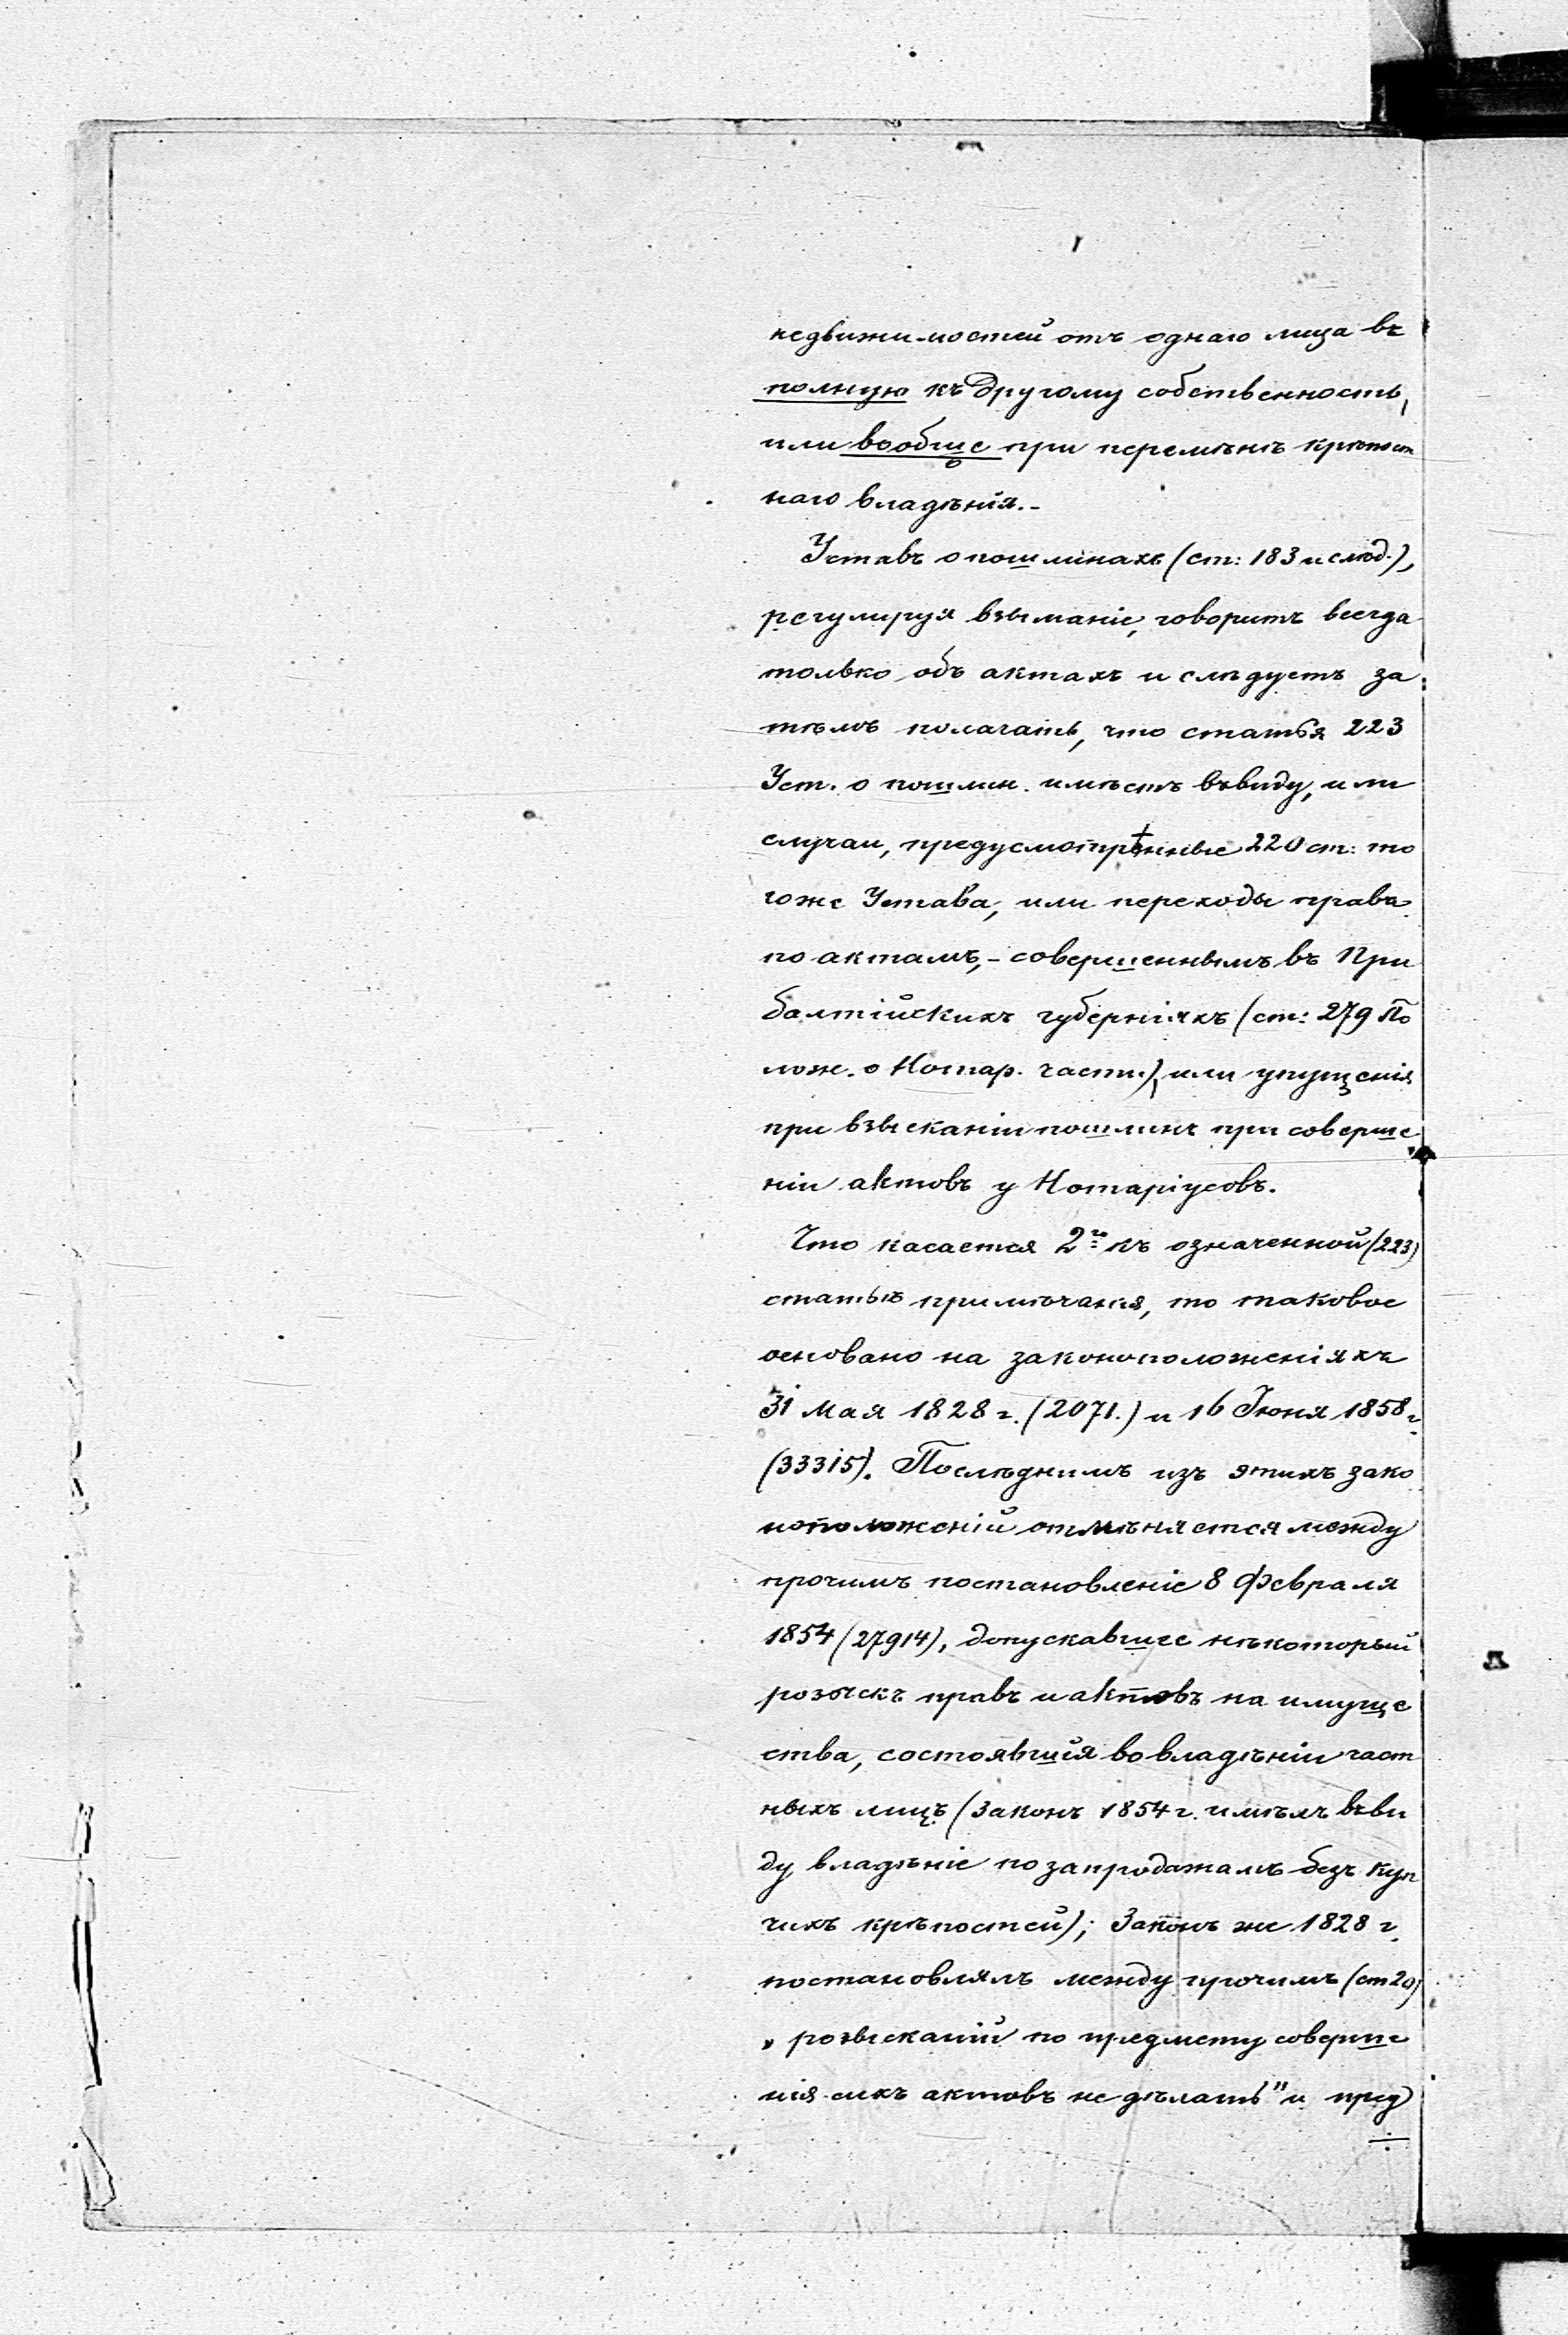 недвижимостей отъ однаго лица въ
полную къ другому собственность,
или вообще при перемѣнѣ крѣпост
наго владѣнія.-
Уставъ о пошлинахъ (ст: 183 и слѣд.),
регулируя взыманіе, говоритъ всегда
только объ актахъ и слѣдуетъ за
тѣмъ полагать, что статья 223
Уст. о пошлин. имѣетъ въ виду, или
случаи, предусмотрѣнные 220 ст: то
гоже Устава, или переходы права
по актамъ,- совершеннымъ въ При
балтійскихъ губерніяхъ (ст: 279 По
лож. о Нотар. части.), или упущенія
при взысканіи пошлинъ при соверше
ніи актовъ у Нотаріусовъ.
Что касается 2го къ означенной (223)
статьѣ примѣчанія, то таковое
основано на законоположеніяхъ
31 Мая 1828 г. (2071.) и 16 Іюня 1858 г.
(33315). Послѣднимъ изъ этихъ зако
ноположеній отмѣняется между
прочимъ постановленіе 8 Февраля
1854 (27914), допускавшее нѣкоторый
розыскъ правъ и актовъ на имуще
ства, состоявшія во владѣніи част
ныхъ лицъ (Законъ 1854 г. имѣлъ въ ви
ду владѣніе по запродажамъ безъ куп
чихъ крѣпостей); Законъ же 1828 г.
постановлялъ между прочимъ (ст 20)
„розысканій по предмету соверше
нія сихъ актовъ не дѣлать" и пред